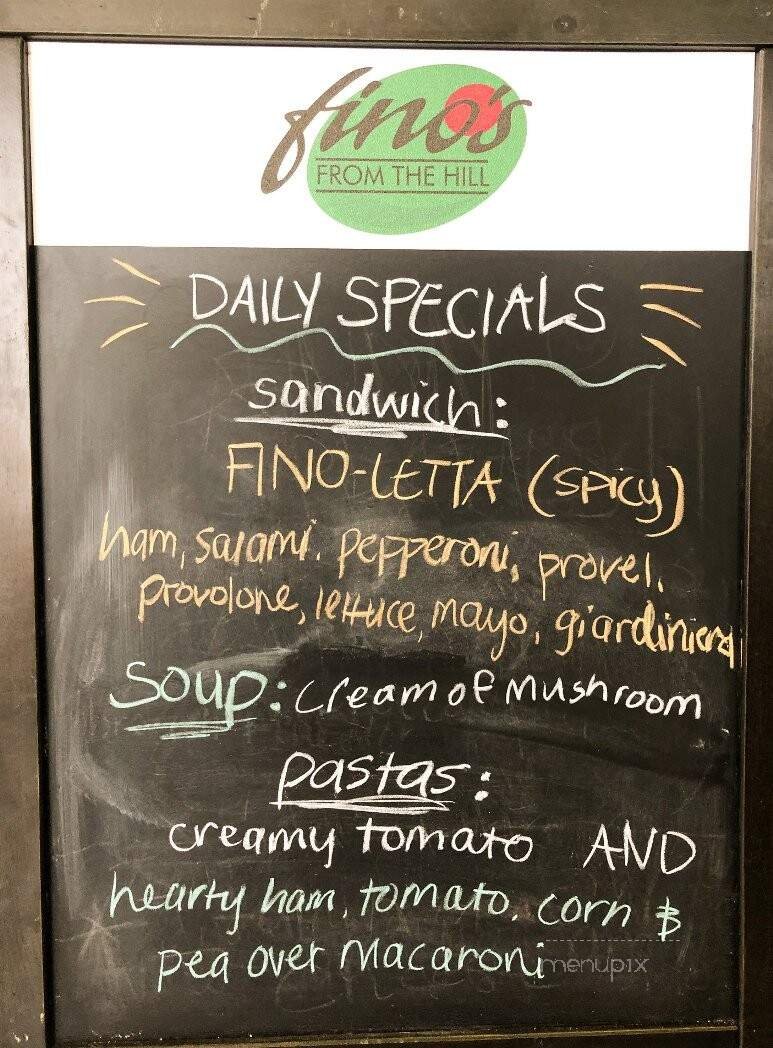 fino's
FROM THE HILL
DAILY SPECIALS
sandwich:
FINO-LETTA (SPICY)
ham, salami, pepperoni, provel,
provolone, lettuce, mayo, giardiniera
Soup: Cream of Mushroom
pastas:
creamy tomato AND
hearty ham, tomato, corn &
pea over Macaroni
menupix